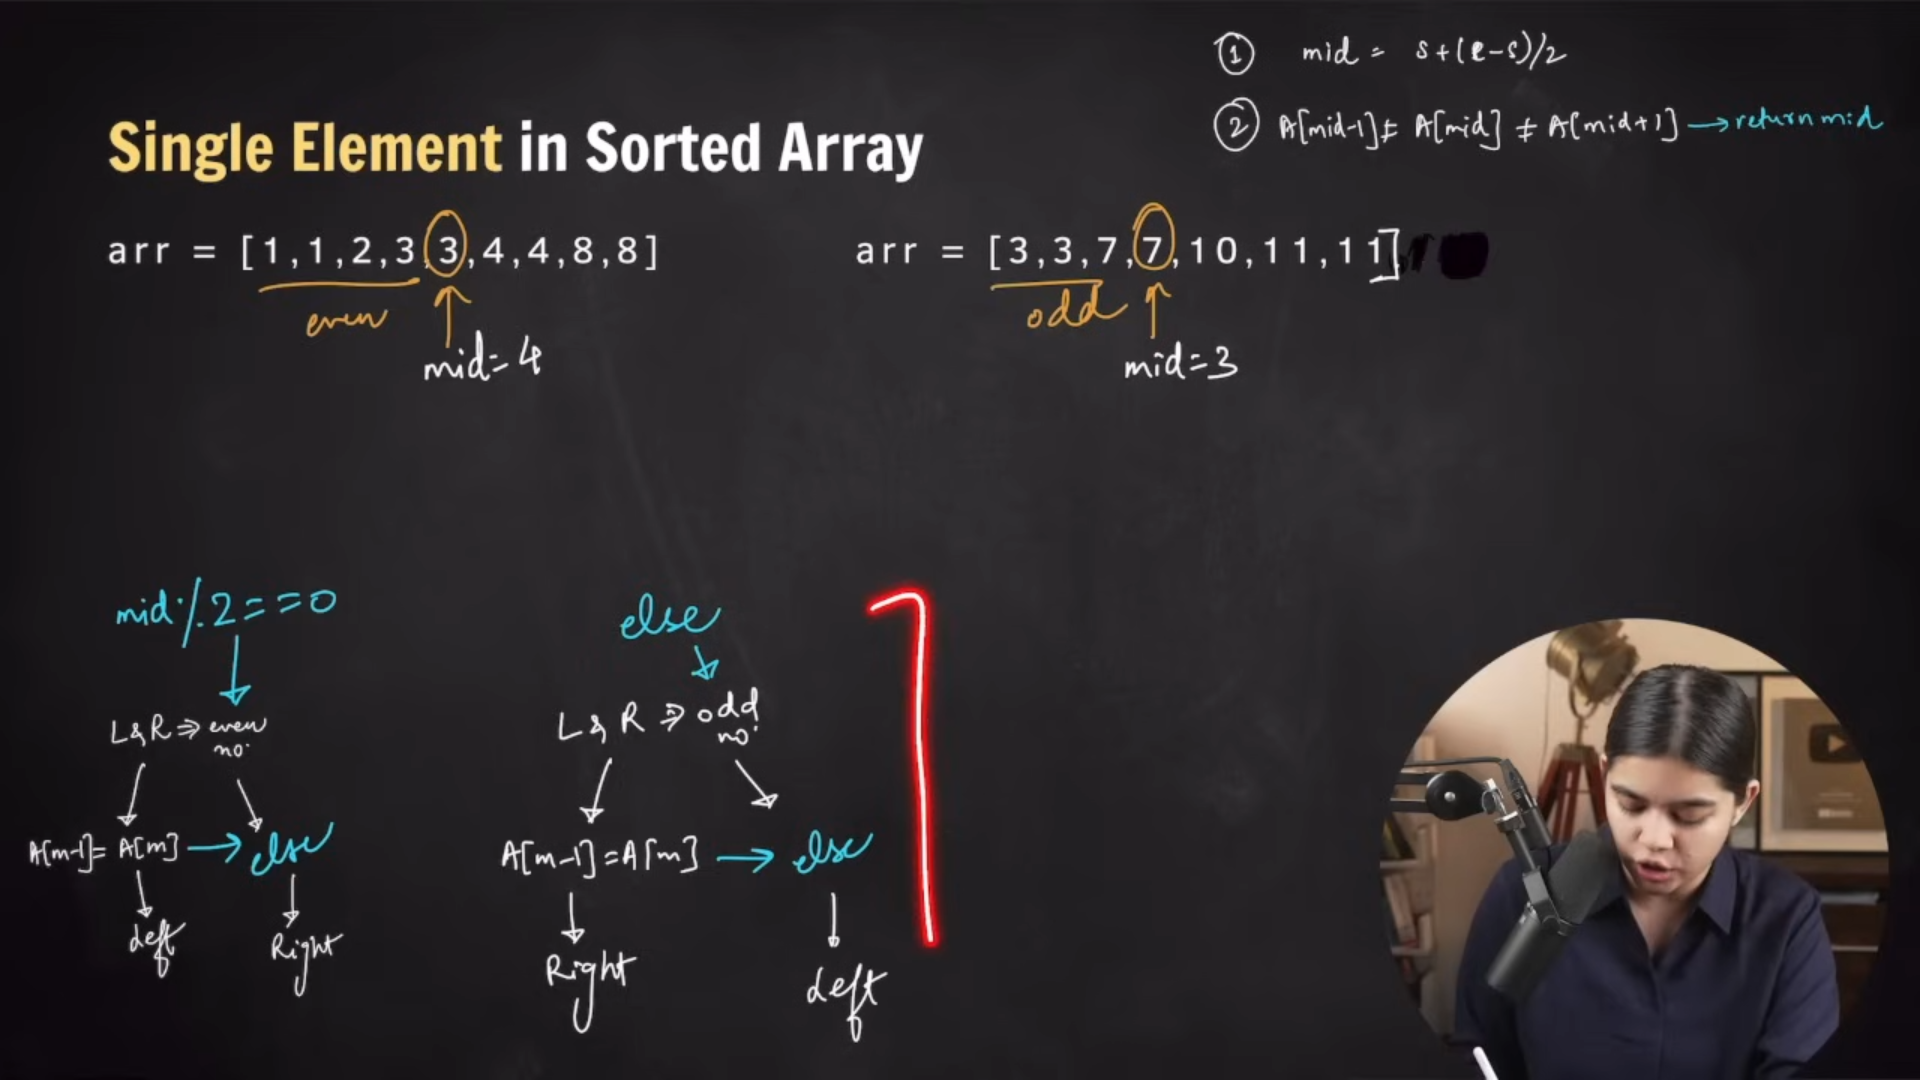 ① mid = s+(e-s)/2
② A[mid-1] ≠ A[mid] ≠ A[mid+1] → return mid
Single Element in Sorted Array
arr = [1,1,2,3,3,4,4,8,8]
even
mid=4
arr = [3,3,7,7,10,11,11]
odd
mid=3
mid%2==0
L & R ⇒ even no.
A[m-1]= A[m] → else
left
Right
else
L & R ⇒ odd no.
A[m-1]=A[m] → else
Right
left